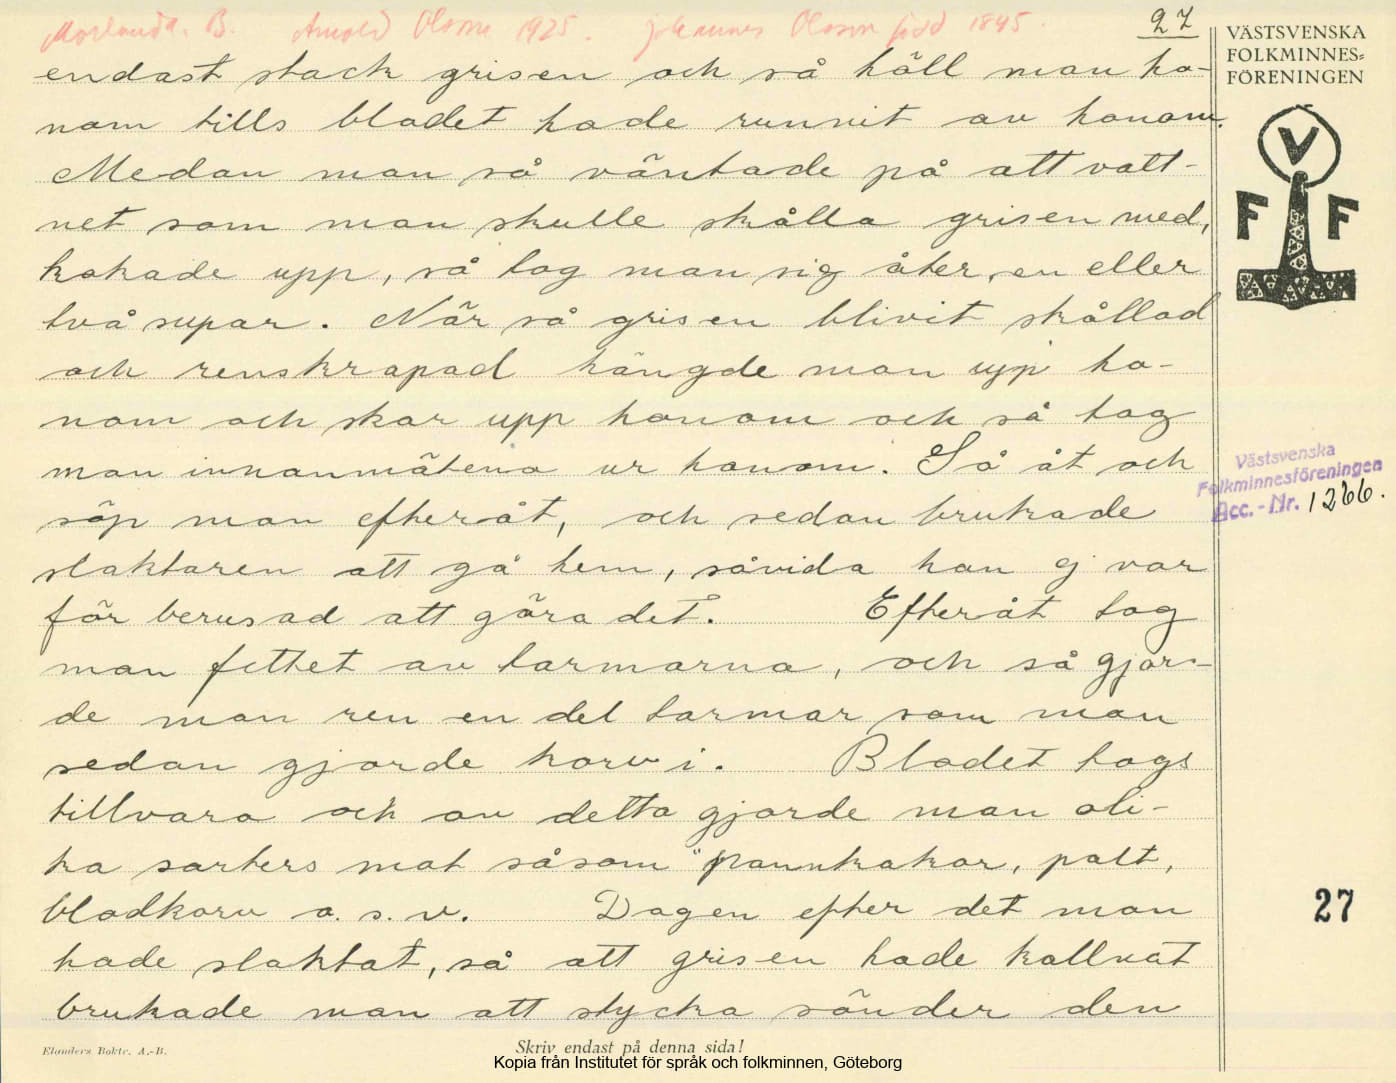 Morlanda. B. Arnold Olsson 1925. Johannes Olsson född 1845.
27
VÄSTSVENSKA
FOLKMINNES=
FÖRENINGEN
V
F F
endast stack grisen och så höll man ho-
nom tills blodet hade runnit av honom.
Medan man så väntade på att vatt-
net som man skulle skålla grisen med,
kokade upp, så tog man sig åter en eller
två supar. När så grisen blivit skållad
och renskrapad hängde man upp ho-
nom och skar upp honom och så tog
man innanmätena ur honom. Så åt och
söp man efteråt, och sedan brukade
slaktaren att gå hem, såvida han ej var
för berusad att göra det. Efteråt tog
man fettet av tarmarna, och så gjor-
de man ren en del tarmar som man
sedan gjorde korv i. Blodet togs
tillvara och av detta gjorde man oli-
ka sorters mat såsom "pannkakor, palt,
blodkorv o. s. v. Dagen efter det man
hade slaktat, så att grisen hade kallnat
brukade man att stycka sönder den
Västsvenska
Folkminnesföreningen
Acc.-Nr. 1266.
27
Elanders Boktr. A.-B.
Skriv endast på denna sida!
Kopia från Institutet för språk och folkminnen, Göteborg